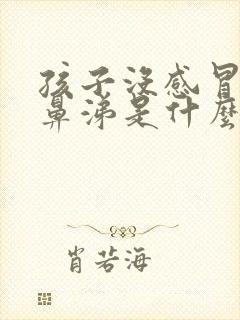 孩子沒感冒
鼻涕是什麼
肖若海